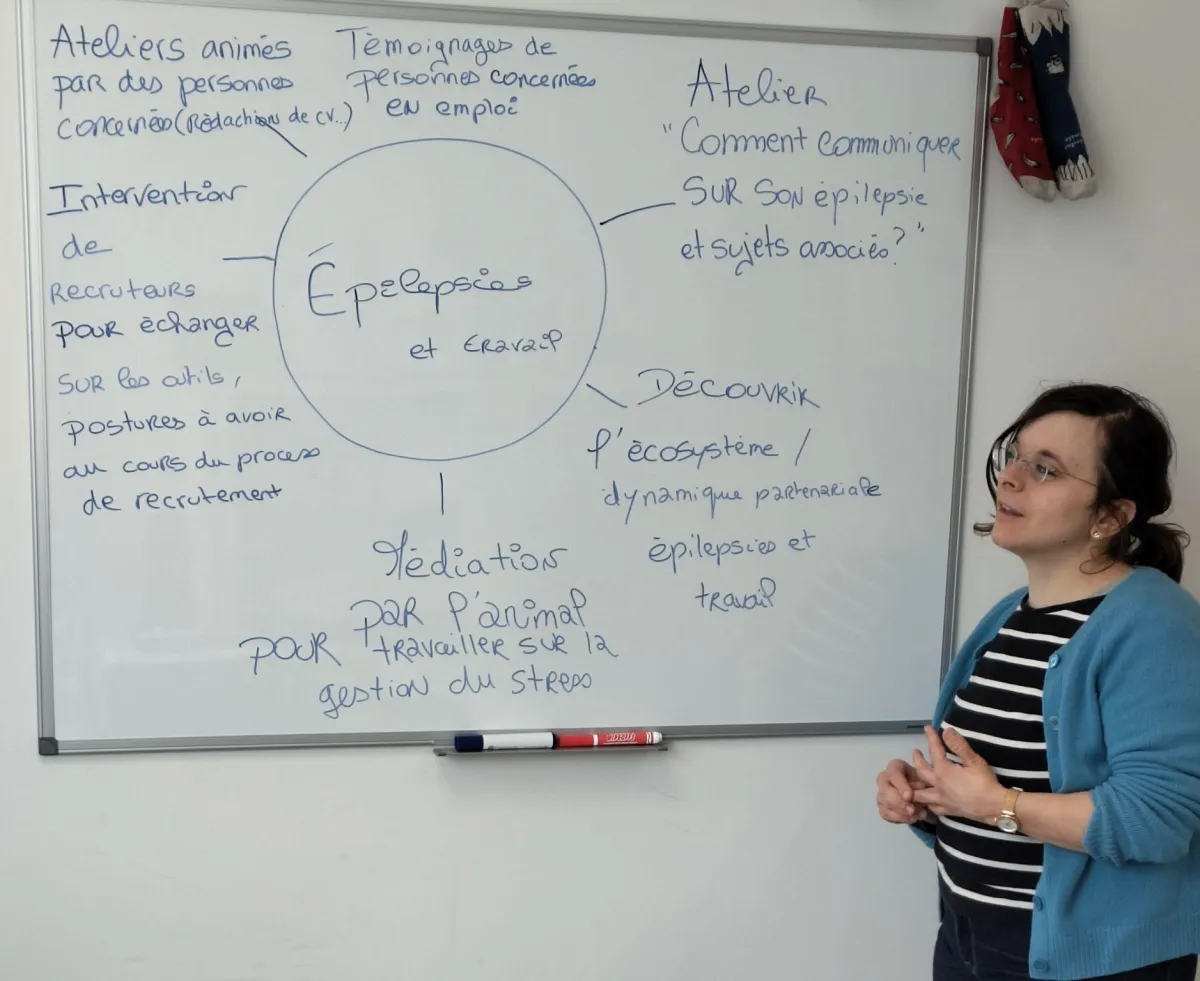 Ateliers animés
par des personnes
concernées (Rédaction de cv..)
Témoignages de
personnes concernées
en emploi
Atelier
"Comment communiquer
sur son épilepsie
et sujets associés?"
Intervention
de
Recruteurs
pour échanger
sur les outils,
postures à avoir
au cours du process
de recrutement
Épilepsies
et travail
Découvrir
l'écosystème /
dynamique partenariale
épilepsies et
travail
Médiation
par l'animal
pour travailler sur la
gestion du stress